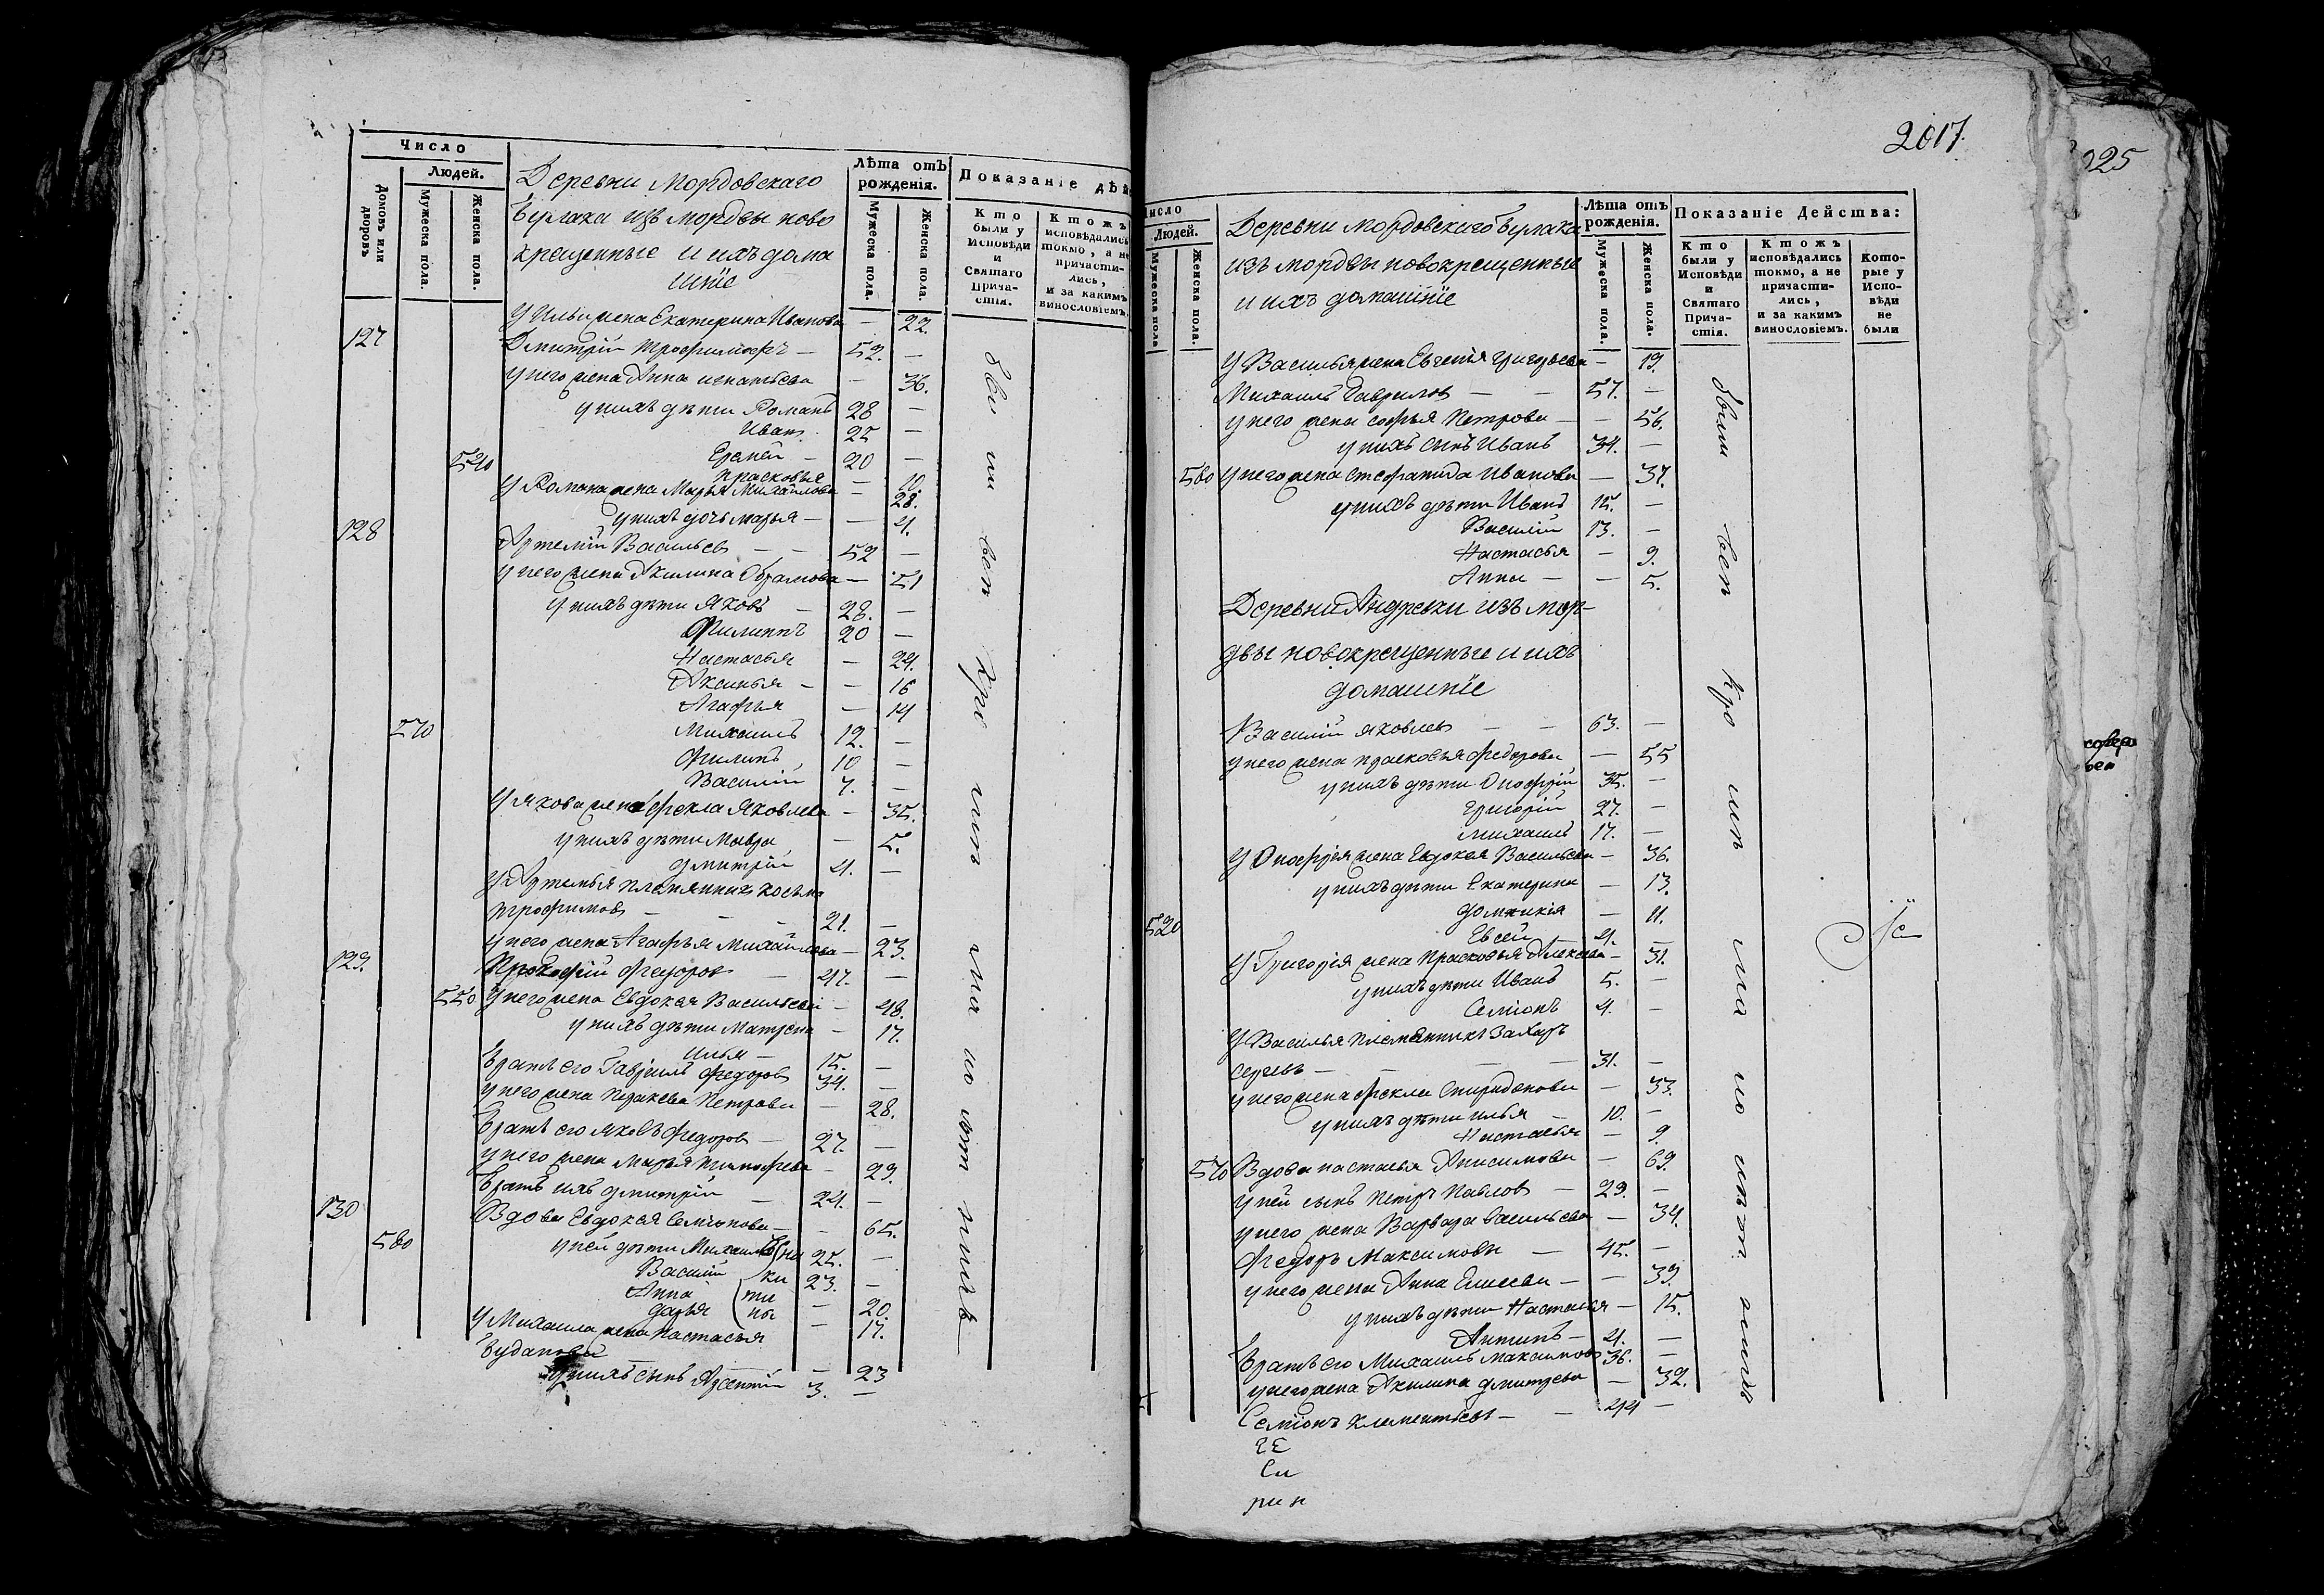 Число
Людей.
Домовъ или дворовъ
Мужеска пола.
Женска пола.
Деревни Мордовскаго
Бугаака изъ мордвы ново
крещенные и ихъ дома
шнїе
Лѣта отъ рожденія.
Мужеска пола.
Женска пола.
Показаніе дѣй
Кто были у Исповѣди и Святаго Прича- стія.
Ктожъ исповѣдались токмо, а не причасти- лись, и за какимъ винословіемъ.
У Ильи жена Екатерина Иванова — 22.
127 Дмитрій Трофимовъ — 52. —
у него жена Анна игнатьева — 36.
у нихъ дѣти Романъ 28 —
Иванъ 25 —
540 Ермей — 20 —
Прасковья — 10.
У Романа жена Марья Михайлова — 28.
у нихъ дочь марья — — 4.
128 Артемій Васильевъ — — 52 —
у него жена Акилина Абрамова — 51
у нихъ дѣти Яковъ — 28. —
Филиппъ 20 —
Настасья — 24.
Аксинья — — 16
Агафья — 14
570 Михаилъ 12. —
Филипъ 10 —
Василій 7. —
У якова жена Фекла Яковлева — 35.
у нихъ дѣти Мавра — 5.
дмитрій 4. —
У Артемья племянникъ косьма
трофимовъ — — — 21. —
у него жена Агафья Михайлова — 23.
129. Прокофій Федоровъ — 47. —
550 У него жена Евдокея Васильева — 48.
у нихъ дѣти Матрена — 17.
Илья — 15. —
братъ его Гаврїилъ Федоровъ 34. —
у него жена Петрова — 28.
братъ его яковъ Федоровъ — 27. —
у него жена Марья Тимофеева — 29.
братъ ихъ дмитрій — 24. —
130 Вдова Евдокея Семїонова — — 65.
580 у ней дѣти Михаилъ 25. —
Василій 23. —
Анна — 20.
дарья — 17.
У Михаила жена Настасья
— 23
у нихъ сынъ Арсентїй 3. —
были вси кро ми ма ло лѣт нихъ
2017.
925
Число
Людей.
Мужеска пола
Женска пола.
Деревни мордовскаго Бугаака
изъ мордвы новокрещенные
и ихъ домашнїе
Лѣта отъ рожденія.
Мужеска пола.
Женска пола.
Показаніе Действа:
Кто были у Исповѣди и Святаго Прича- стія.
Ктожъ исповѣдались токмо, а не причасти- лись, и за какимъ винословіемъ.
Кото- рые у Испо- вѣди не были
У Василья жена Евгенїя Григорьева — 19.
Михаилъ Гавриловъ — — 57. —
у него жена софья Петрова — — 56.
у нихъ сынъ Иванъ 34. —
560 у него жена Стефанида Иванова — 37.
у нихъ дѣти Иванъ 15. —
Василїй 13. —
Настасья — 9.
Анна — — 5.
Деревни Андревки изъ мор-
двы новокрещенные и ихъ
домашнїе
Василїй яковлевъ — — 63. —
у него жена прасковья Федорова — 55
у нихъ дѣти Онофрїй 35. —
Григорїй 27. —
михаилъ 17. —
У Онофрїя жена Евдокея Васильева — 36.
у нихъ дѣти Екатерина — 13.
520 домникїя — 11.
Евсей 4. —
У Григорїя жена Прасковья Алексеева — 31.
у нихъ дѣти Иванъ 5. —
Семїонъ 4. —
У Василья племянникъ Захаръ
сергевъ — — — 31. —
у него жена Фекла Спиридонова — 33.
у нихъ дѣти илья — 10. —
Настасья — 9.
570 Вдова настасья Анисимова — 69.
у ней сынъ Петръ Павловъ — 29. —
у него жена Варвара васильева — 34.
Федоръ Максимовъ — 45. —
у него жена Анна Елисеева — — 39.
у нихъ дѣти Настасья — 15.
Антипъ — 4. —
братъ его Михаилъ Максимовъ 36. —
у него жена Акилина дмитрева — 32.
Семїонъ Клементьевъ — — 44 —
были вси кро мѣ ма ло лѣт нихъ